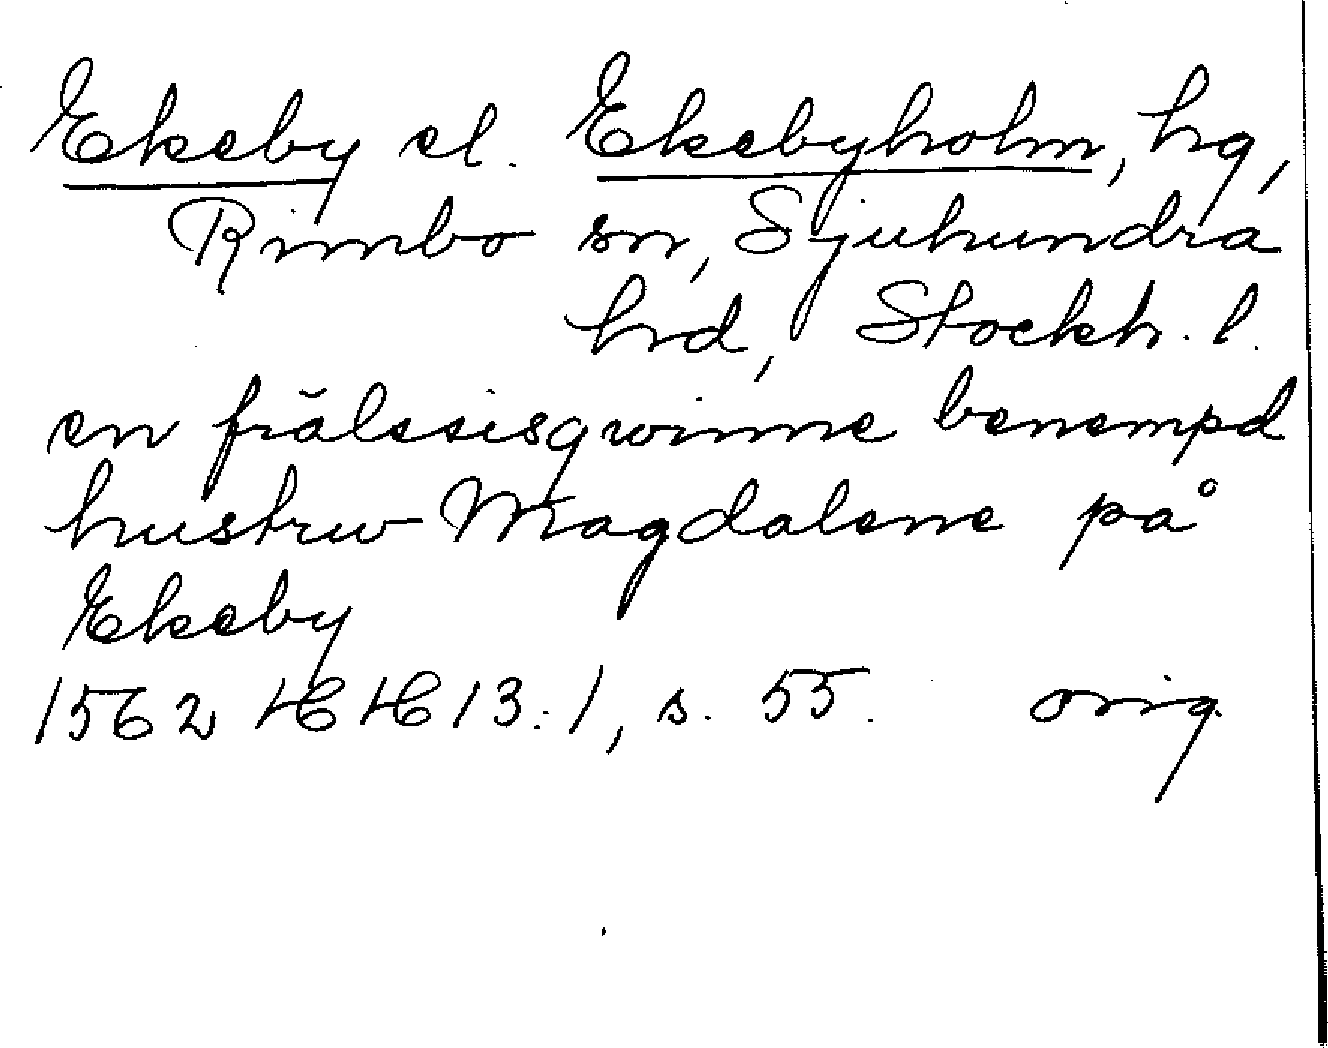 Ekeby el. Ekebyholm, hg,
Rimbo sn, Sjuhundra
hrd, Stockh. l.
en frälsesisqwinne benempd
hustrw Magdalene på
Ekeby
1562 HH 13:1, s. 55. orig.